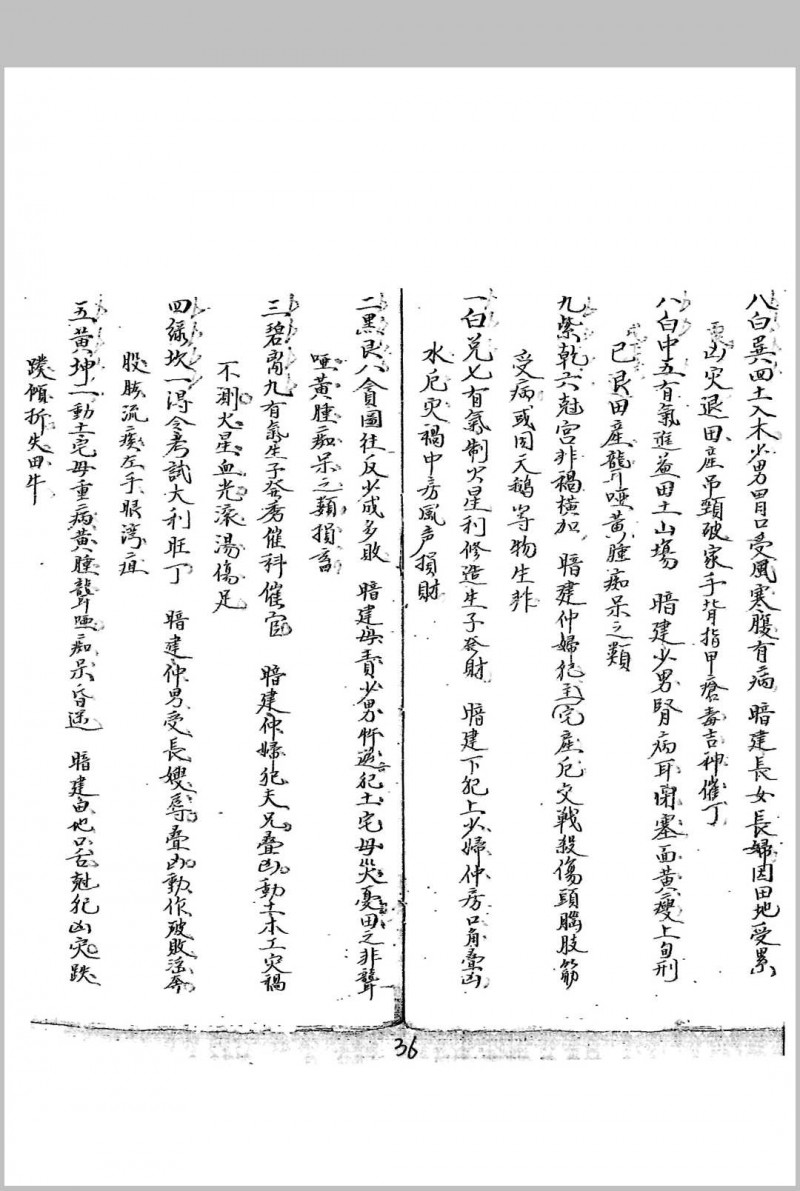 八白巽四土入木少男胃口受風寒腹有病　暗建長女長婦因田地受累
凶灾退田產吊頸破家手背指甲瘡毒吉神催丁
八白中五有氣進益田土山塲　暗建少男腎病耳閉塞面黃瘦上旬刑
己艮田產聾啞黃腫痴呆之類
九紫乾六尅宮非禍橫加　暗建仲婦犯主宅產厄交戰殺傷頭腦肢筋
受病或因天鵝等物生非
一白兌七有氣制火星利修造生子發財　暗建下犯上少婦仲房口角疊凶
水厄灾禍中房風声損財
二黑艮八貪圖往反少成多敗　暗建母責少男忤逆犯土宅母災憂田之非聾
啞黃腫痴呆之類損畜
三碧离九有氣生子發秀催科催官　暗建仲婦犯夫兄疊凶動土木工灾禍
不測火星血光滾湯傷足
四綠坎一得令考試大利旺丁　暗建仲男受長嫂辱疊凶動作破敗淫奔
股肱流痰左手眼湾疽
五黃坤一動土宅母重病黃腫聾啞痴呆昏迷　暗建由地口舌尅犯凶灾跌
蹼傾折失田牛
36